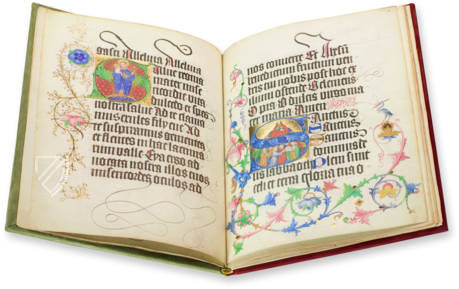 Alleluia Alleluia
alve regina
mater mise
ricordie vita
dulcedo et spes
nostra salve Ad te clama
mus exules filii eve Ad
te suspiramus gementes
et flentes in hac lacrima
rum valle Eya ergo advo
cata nostra illos tuos
misericordes oculos ad
nos converte Et
benedictum fructum ven
tris tui nobis post hoc ex
ilium ostende O clemens
O pia O dulcis virgo ma
Sanctus
anctus
anctus
dominus de
us sabaoth Pleni sunt
celi et terra gloria tua O